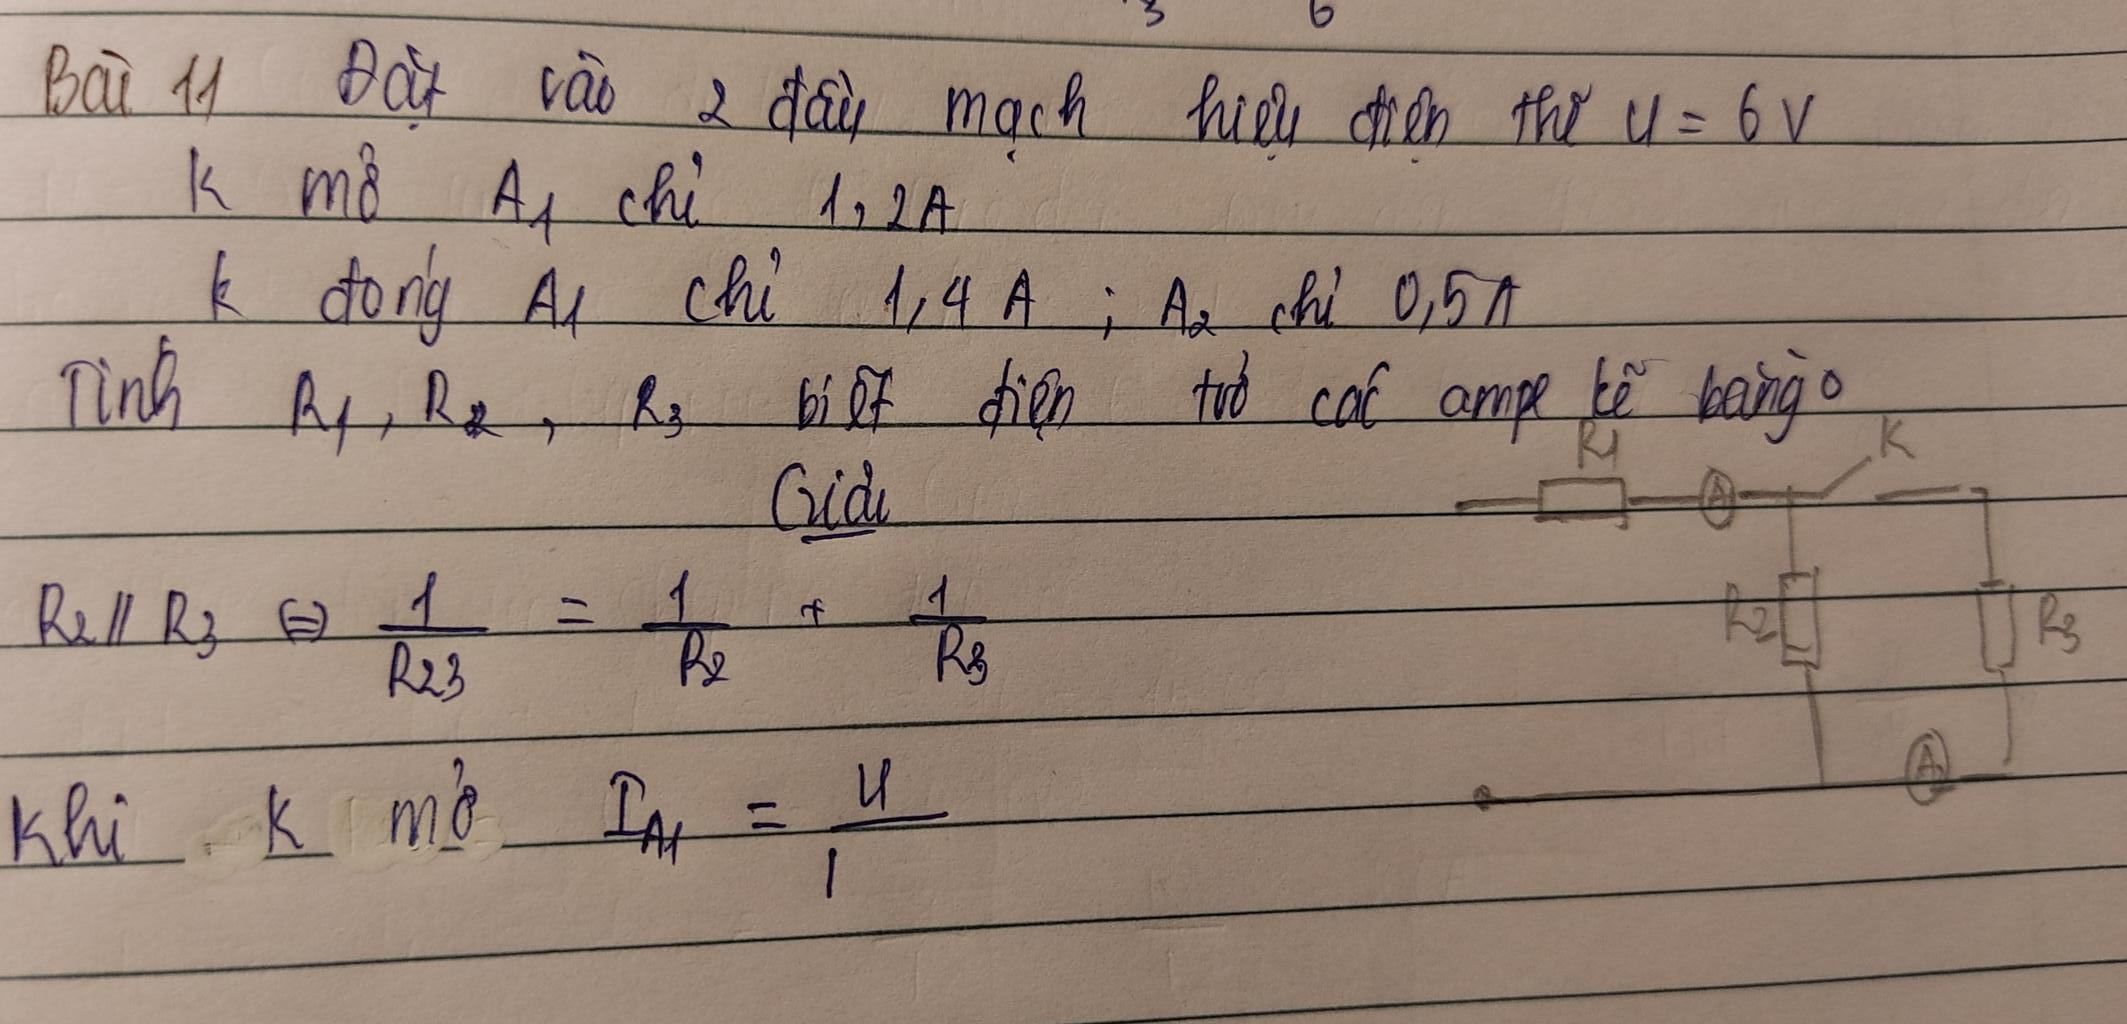 3 6
Bài 11 Đặt vào 2 đầu mạch hiệu điện thế U = 6V
K mở A1 chỉ 1,2A
k đóng A1 chỉ 1,4 A ; A2 chỉ 0,5A
Tính R1, R2, R3 biết điện trở các ampe kế bằng 0
R1 K
Giải
A
R2 // R3 ⇔ 1/R23 = 1/R2 + 1/R3
R2 R3
A2
Khi K mở IA1 = U